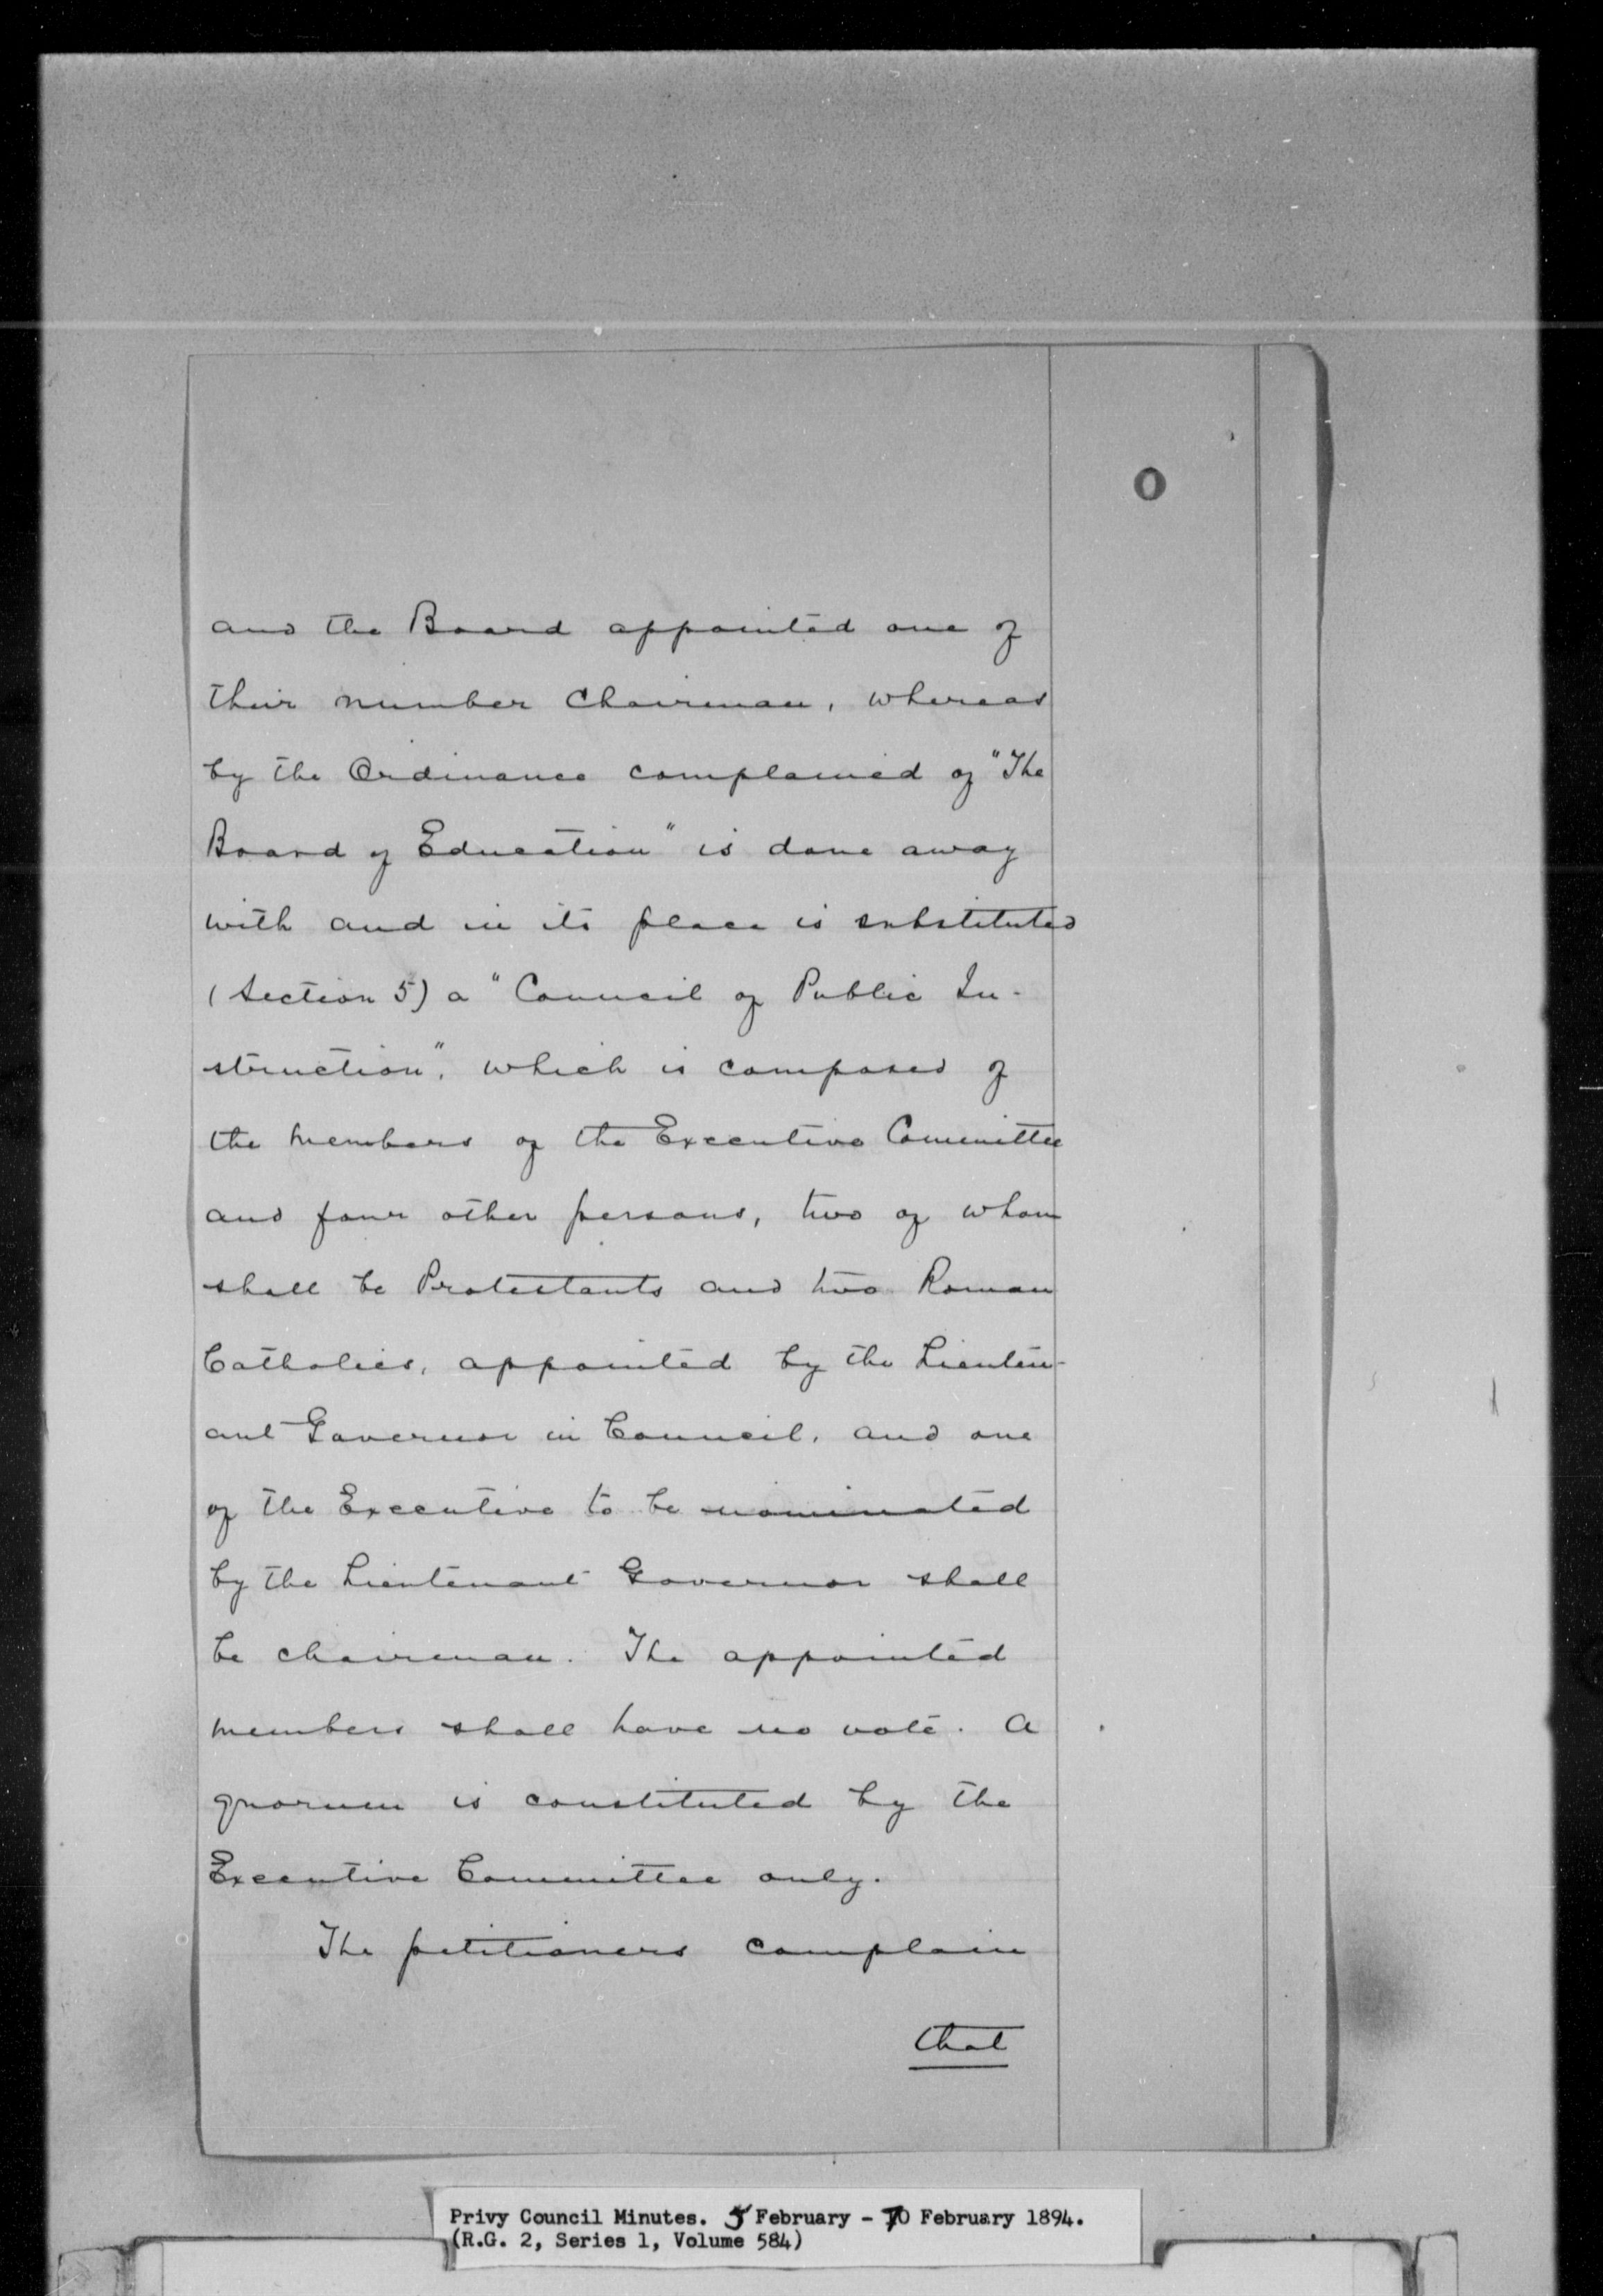 O
and the Board appointed one of
their number Chairman, whereas
by the Ordinance complained of "The
Board of Education" is done away
with and in its place is substituted
(Section 5) a "Council of Public In-
struction", which is composed of
the members of the Executive Committee
and four other persons, two of whom
shall be Protestants and two Roman
Catholics, appointed by the Lieuten-
ant Governor in Council, and one
of the Executive to be nominated
by the Lieutenant Governor shall
be chairman. The appointed
members shall have no vote. A
quorum is constituted by the
Executive Committee only.
The petitioners complain
that
Privy Council Minutes. 5 February - 10 February 1894.
(R.G. 2, Series 1, Volume 584)